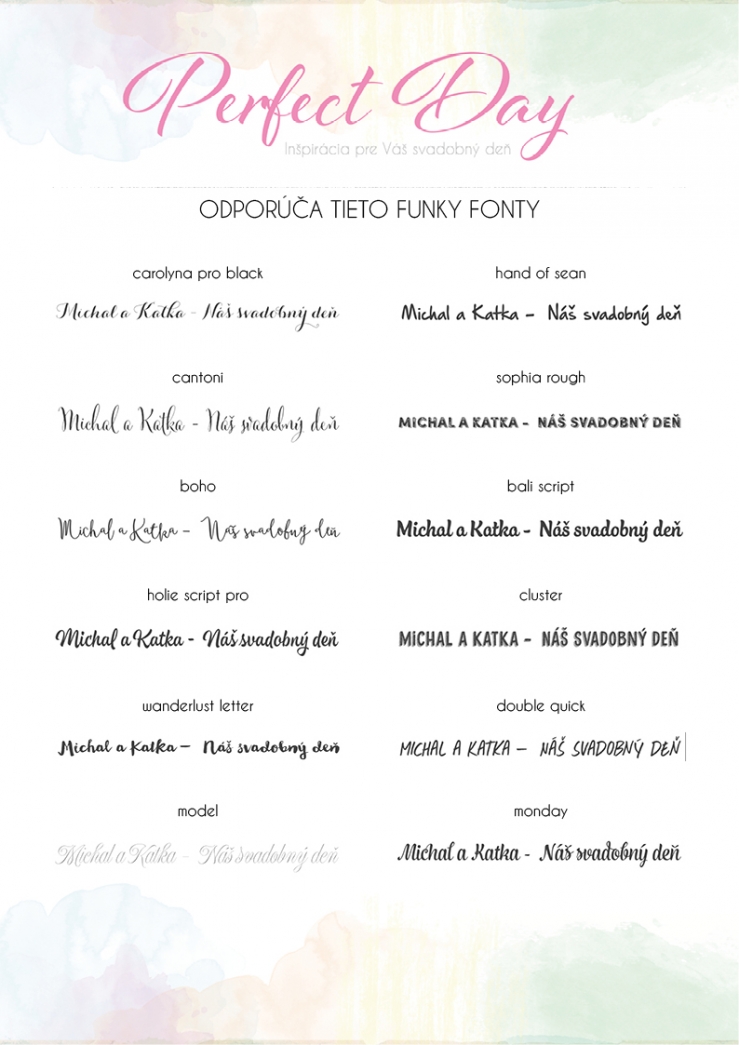 Perfect Day
Inšpirácia pre Váš svadobný deň
ODPORÚČA TIETO FUNKY FONTY
carolyna pro black
Michal a Katka - Náš svadobný deň
hand of sean
Michal a Katka – Náš svadobný deň
cantoni
Michal a Katka - Náš svadobný deň
sophia rough
MICHAL A KATKA - NÁŠ SVADOBNÝ DEŇ
boho
Michal a Katka - Náš svadobný deň
bali script
Michal a Katka - Náš svadobný deň
holie script pro
Michal a Katka - Náš svadobný deň
cluster
MICHAL A KATKA - NÁŠ SVADOBNÝ DEŇ
wanderlust letter
Michal a Katka – Náš svadobný deň
double quick
MICHAL A KATKA – NÁŠ SVADOBNÝ DEŇ
model
Michal a Katka - Náš svadobný deň
monday
Michal a Katka - Náš svadobný deň